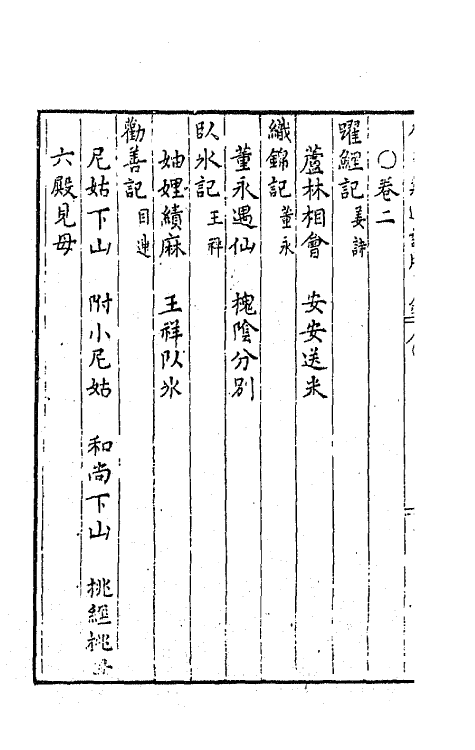 ○卷二
躍鯉記 姜詩
蘆林相會 安安送米
織錦記 董永
董永遇仙 槐陰分別
臥氷記 王祥
妯娌績麻 王祥臥氷
勸善記 目連
尼姑下山 附小尼姑 和尚下山 挑經挑
六殿見母